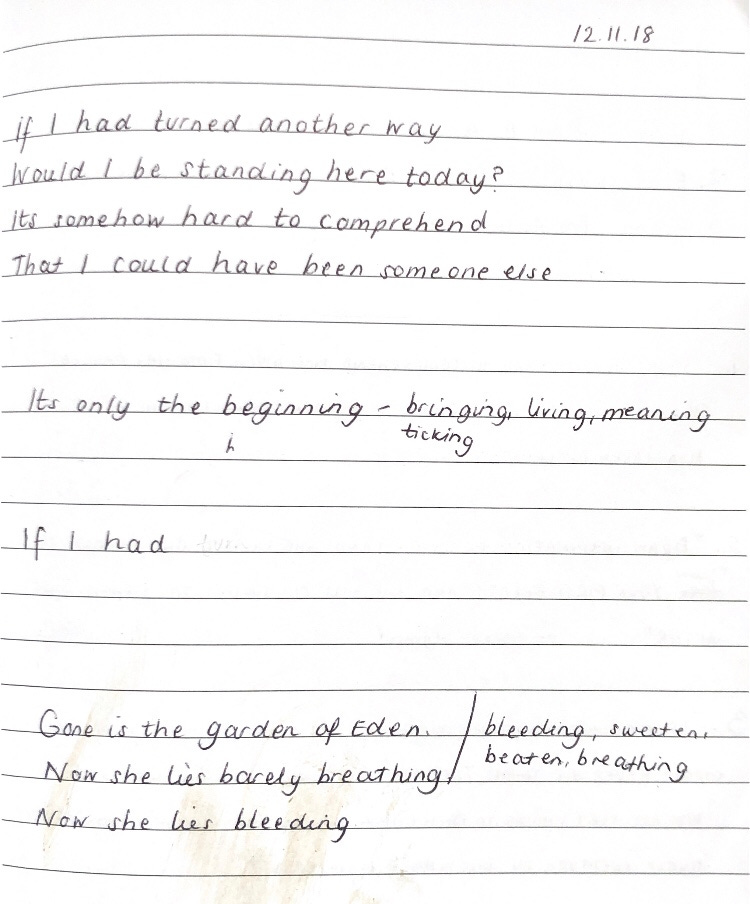 12.11.18
if I had turned another way
Would I be standing here today?
its somehow hard to comprehend
That I could have been someone else
Its only the beginning - bringing, living, meaning
ticking
h
If I had
Gone is the garden of Eden. / bleeding, sweeten,
beaten, breathing
Now she lies barely breathing,
Now she lies bleeding